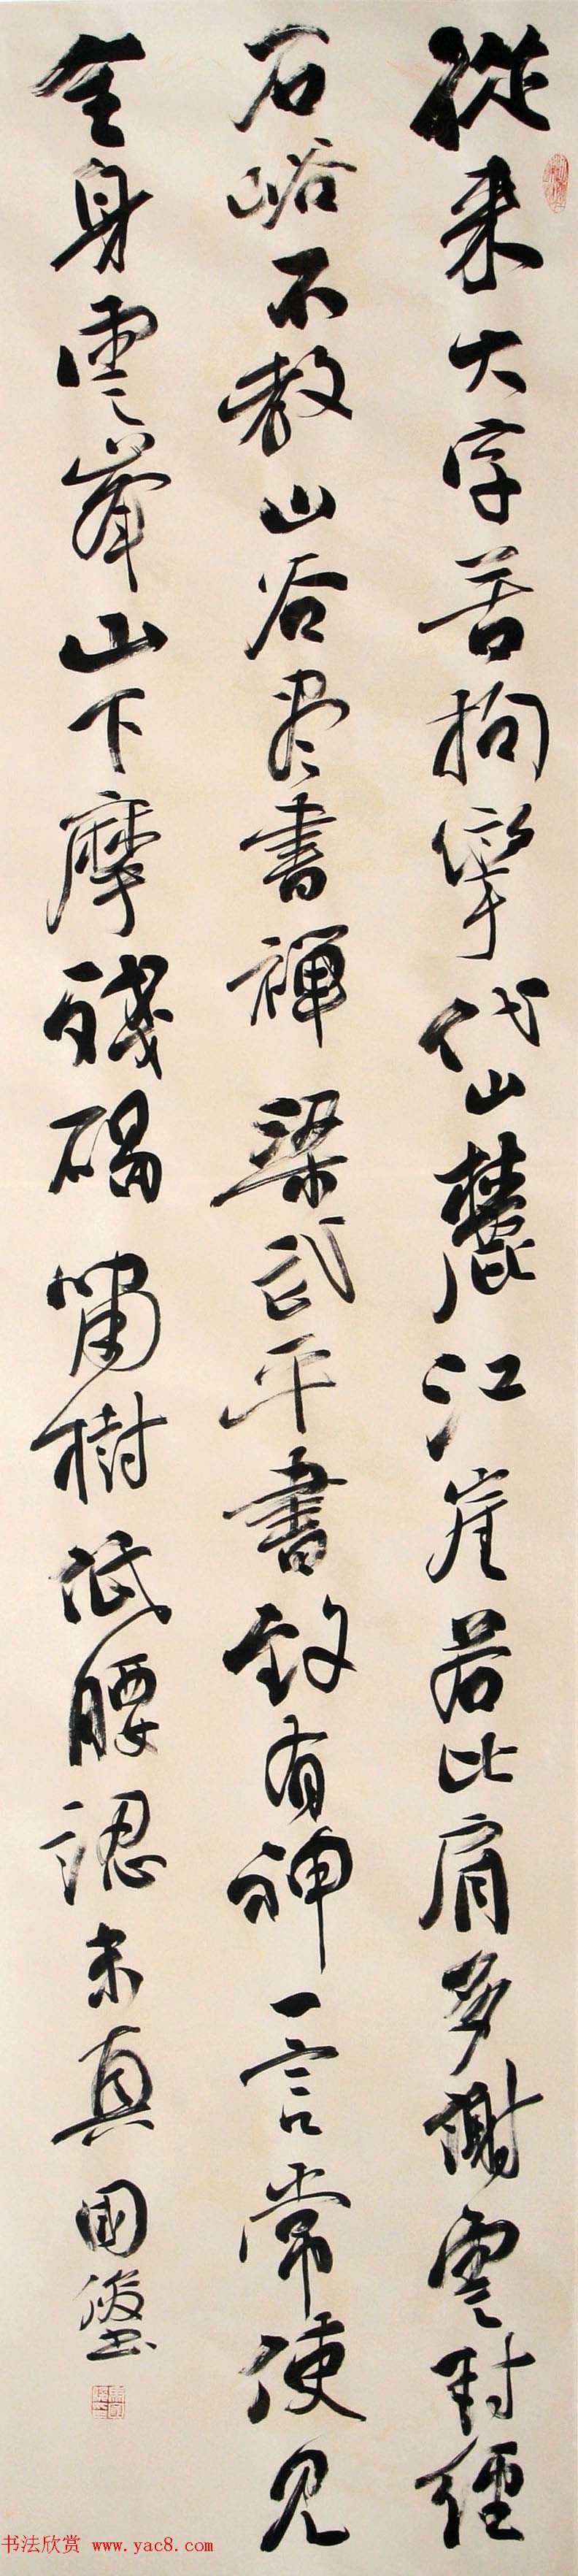 從来大字苦拘挛岱山麓江崖若比肩多謝雲封經
石峪不教山谷尽書禅梁武平書致有神一言常使見
全身雲峯山下摩殘碣嘯樹低腰認未真國
书法欣赏 www.yac8.com